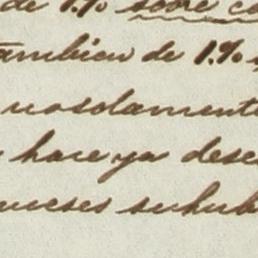 de 1.% sobre co
tambien de 1.%
nosolamente
hace ya dese
meses suhub